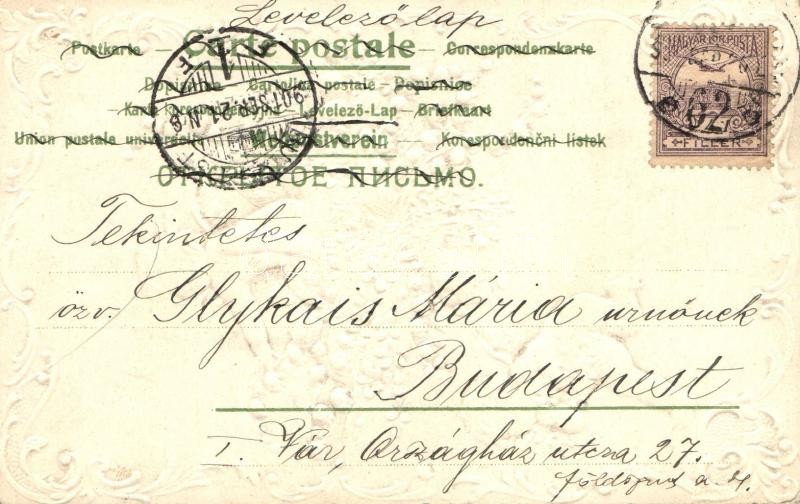 Levelező lap
Postkarte – Carte postale – Correspondenzkarte
Dopisnice – Cartolina postale – Dopisnice
Levelező-Lap – Briefkaart
Union postale universelle – Weltpostverein – Korespondenční lístek
ОТКРЫТОЕ ПИСЬМО.
MAGYAR KIR. POSTA
FILLÉR
Tekintetes
özv. Glykais Mária urnőnek
Budapest
I. Vár, Országház utcza 27.